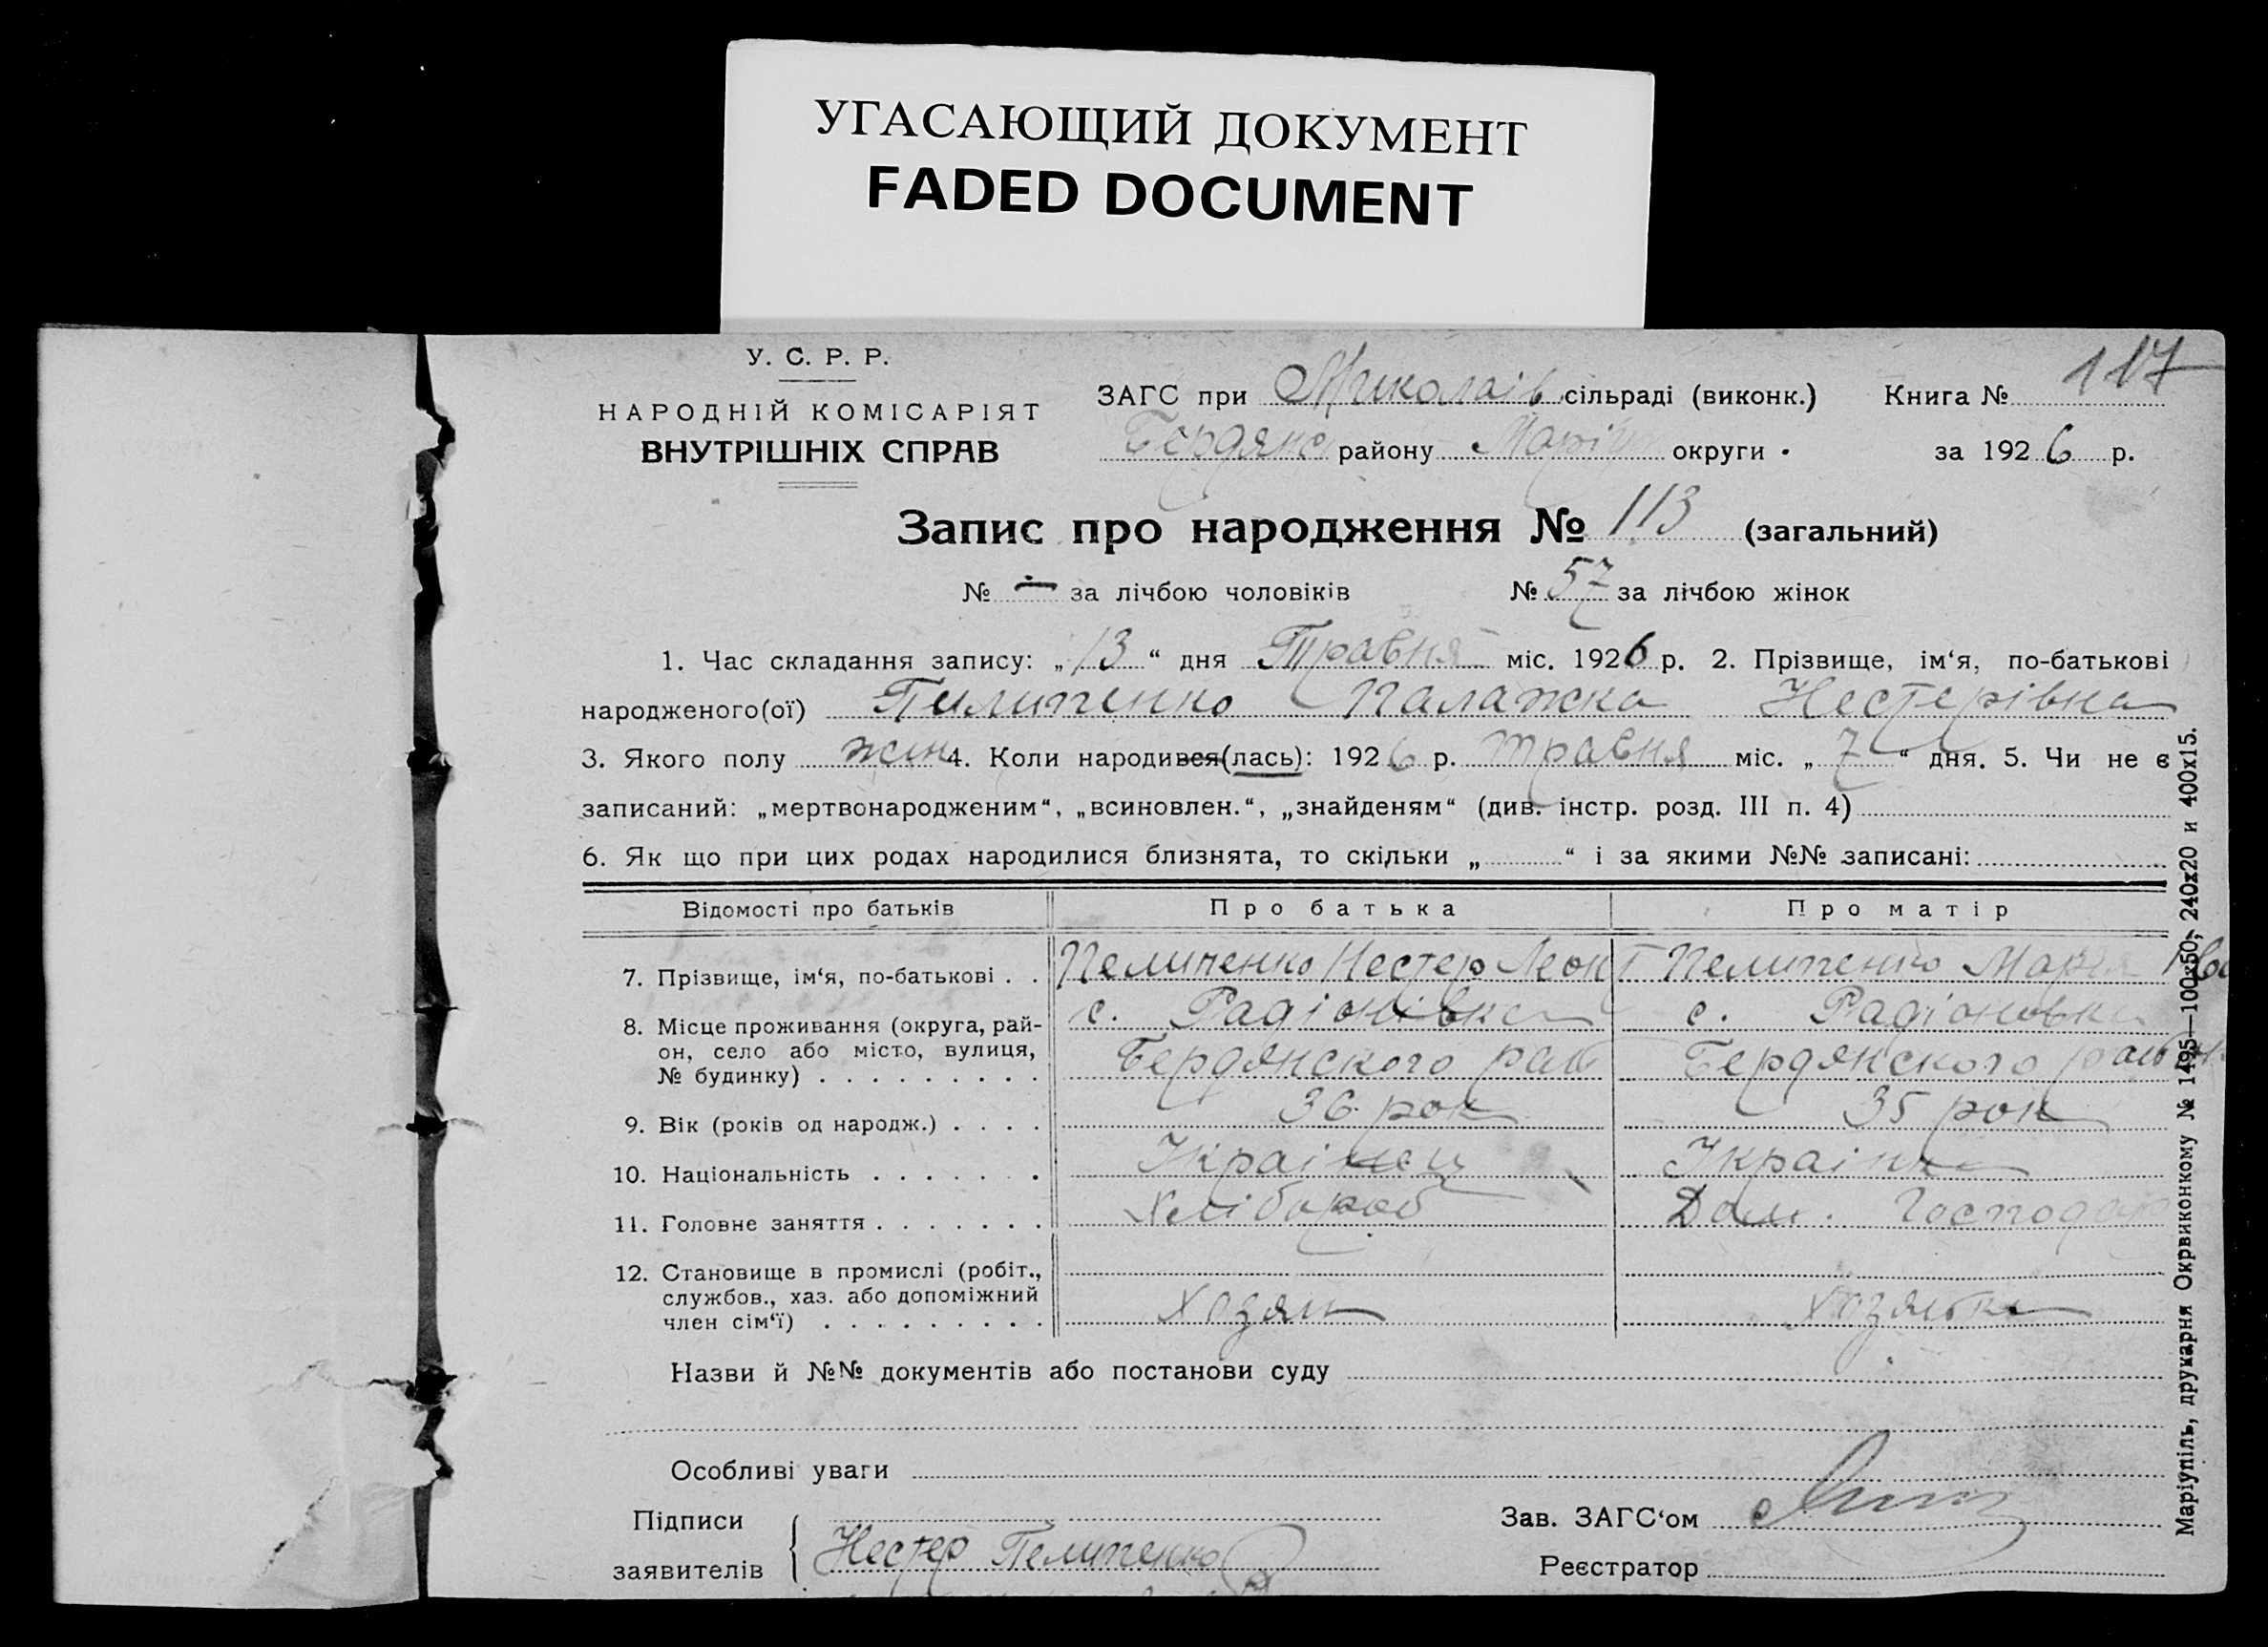 УГАСАЮЩИЙ ДОКУМЕНТ
FADED DOCUMENT
У. С. Р. Р.
НАРОДНІЙ КОМІСАРІЯТ
ВНУТРІШНІХ СПРАВ
ЗАГС при Миколаїв сільраді (виконк.) Книга № 117
Бердянс району Марiп округи за 1926 р.
Запис про народження № 113 (загальний)
№ — за лічбою чоловіків № 57 за лічбою жінок
1. Час складання запису: „13“ дня Травня міс. 1926 р. 2. Прізвище, ім‘я, по-батькові
народженого(ої) Пилипенко Палажка Нестерівна
3. Якого полу жін 4. Коли народився(лась): 1926 р. травня міс. „7“ дня. 5. Чи не є
записаний: „мертвонародженим“, „всиновлен.“, „знайденям“ (див. інстр. розд. III п. 4)
6. Як що при цих родах народилися близнята, то скільки „ “ і за якими №№ записані:
Відомості про батьків Про батька Про матір
7. Прізвище, ім‘я, по-батькові . . Пелипенко Нестер Леонт Пелипенко Марія
8. Місце проживання (округа, рай- с. Радіонівка с. Радіоновка
он, село або місто, вулиця, Бердянского рай Бердянского район
№ будинку) . . . . . . . . .
9. Вік (років од народж.) . . . . 36 рок 35 рок
10. Національність . . . . . . . Українец Українка
11. Головне заняття . . . . . . . Хлібороб Дом. Господар
12. Становище в промислі (робіт.,
службов., хаз. або допоміжний
член сім‘ї) . . . . . . . . . Хозяин Хозяйка
Назви й №№ документів або постанови суду
Особливі уваги
Підписи Зав. ЗАГС‘ом
заявителів Нестер Пелипенко Реєстратор
Маріупіль, друкарня Окрвиконкому № 1495—100х50, 240х20 и 400х15.